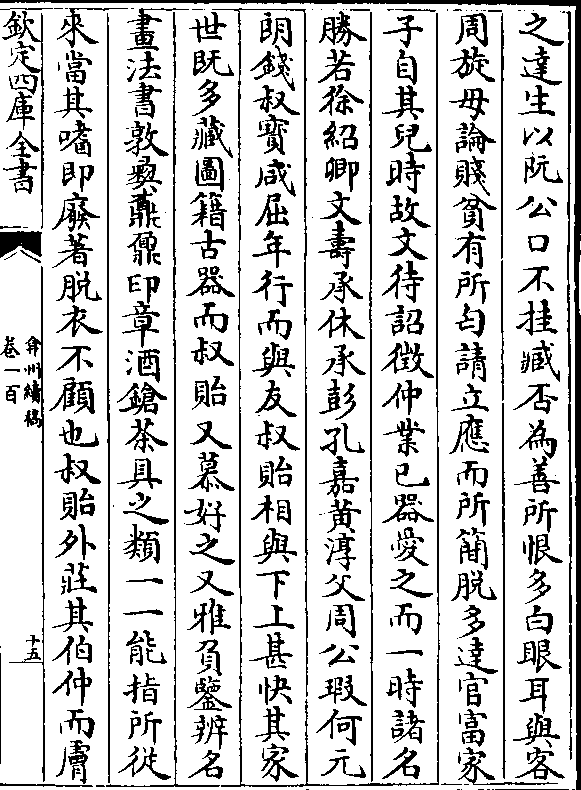 之達生以阮公口不挂臧否為善所恨多白眼耳與客
周旋毋論賤貧有所匄請立應而所簡脱多達官富家
子自其兒時故文待詔徵仲業已器愛之而一時諸名
勝若徐紹卿文壽承休承彭孔嘉黄淳父周公瑕何元
朗錢叔寳咸屈年行而與友叔貽相與下上甚快其家
世既多藏圖籍古器而叔貽又慕好之又雅負鑒辨名
畫法書敦彜鼒鼐印章酒鎗茶具之類一一能指所從
來當其嗜即廢著脱衣不顧也叔貽外莊其伯仲而膚
欽定四庫全書
弇州續稿
卷一百
十五